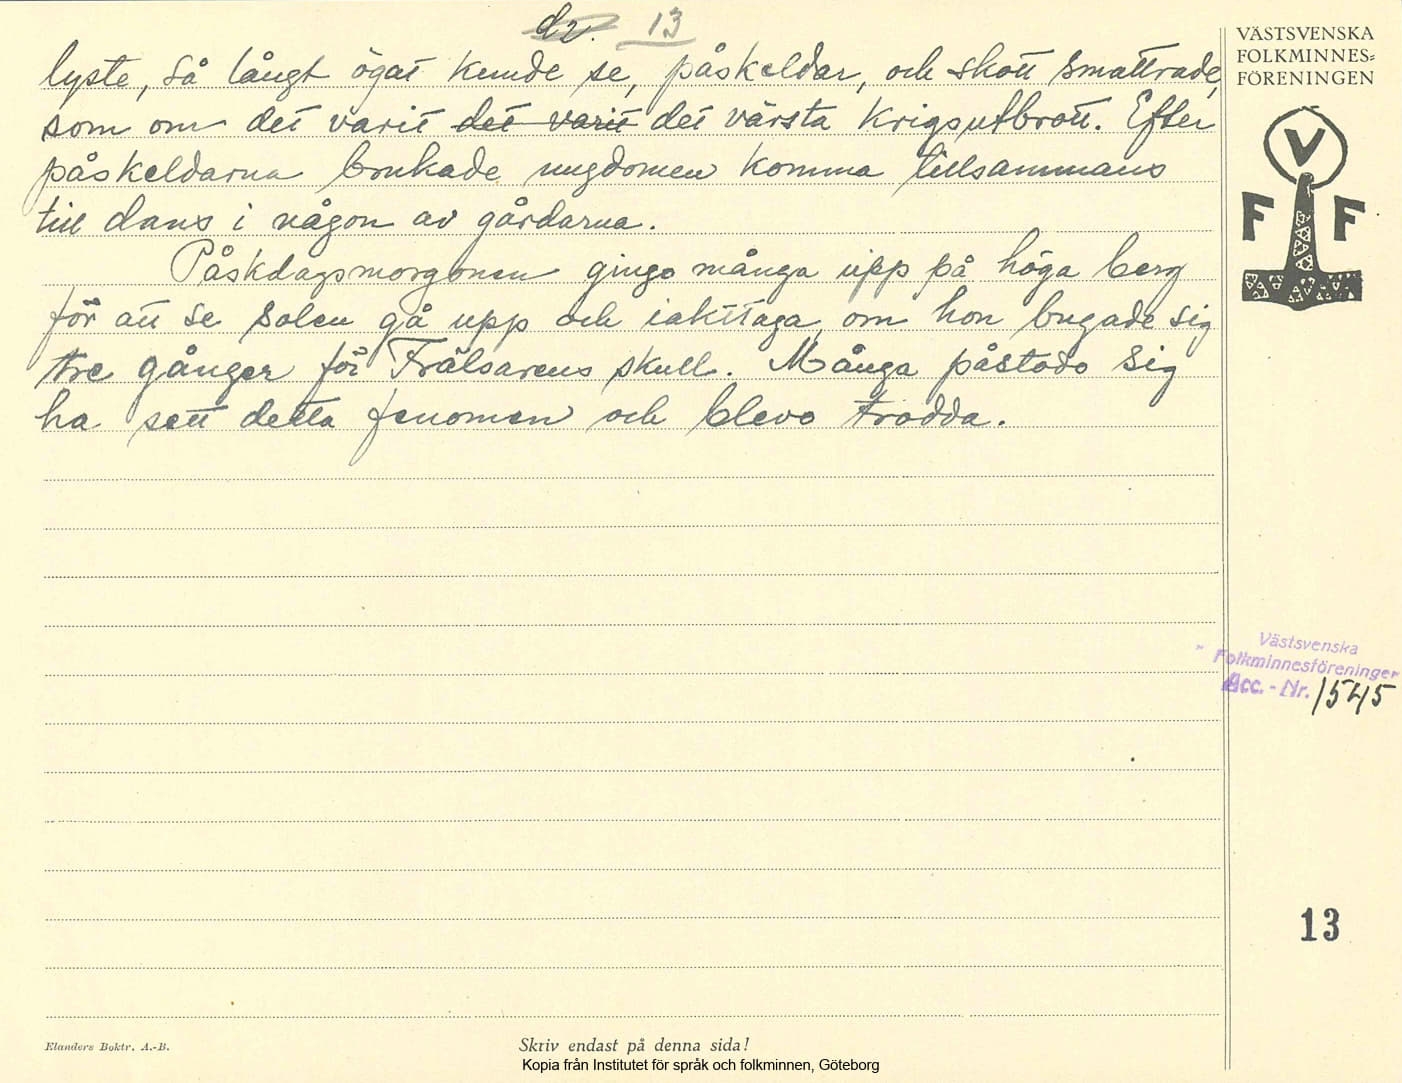 13
lyste, så långt ögat kunde se, påskeldar, och skott smattrade,
som om det varit det varit det värsta krigsutbrott. Efter
påskeldarna brukade ungdomen komma tillsammans
till dans i någon av gårdarna.
Påskdagsmorgonen gingo många upp på höga berg
för att se solen gå upp och iakttaga, om hon bugade sig
tre gånger för Frälsarens skull. Många påstodo sig
ha sett detta fenomen och blevo trodda.
VÄSTSVENSKA
FOLKMINNES=
FÖRENINGEN
V
F F
Västsvenska
Folkminnesföreningen
Acc. - Nr. 1545
13
Elanders Boktr. A.-B.
Skriv endast på denna sida!
Kopia från Institutet för språk och folkminnen, Göteborg